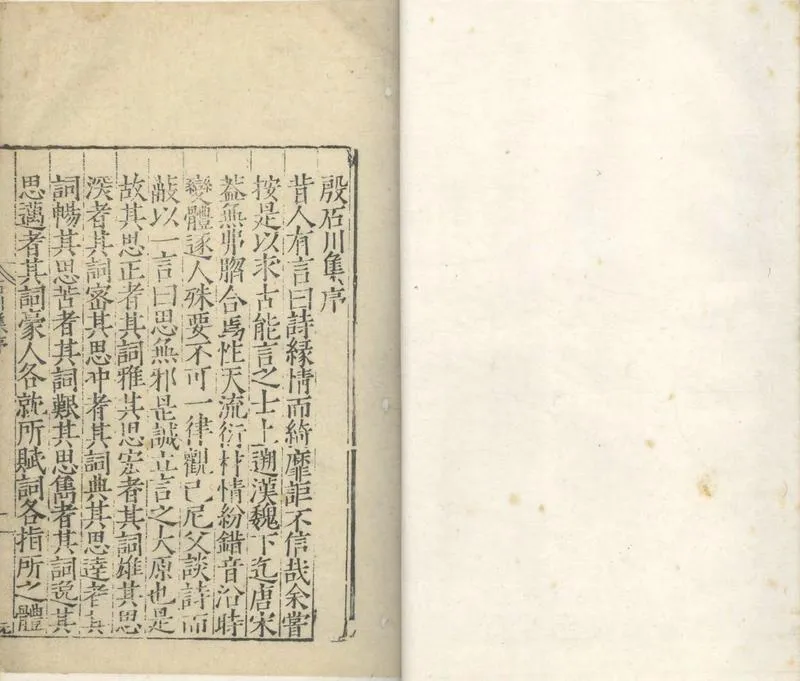 殷石川集序
昔人有言曰詩緣情而綺靡詎不信哉余嘗
按是以求古能言之士上遡漢魏下迄唐宋
葢無弗脗合焉性天流衍材情紛錯音沿時
變體逐人殊要不可一律觀已尼父談詩而
蔽以一言曰思無邪是誠立言之大原也是
故其思正者其詞雅其思宏者其詞雄其思
深者其詞密其思冲者其詞典其思達者其
詞暢其思苦者其詞艱其思雋者其詞逸其
思邁者其詞豪人各就所賦詞各指所之體
石川集序